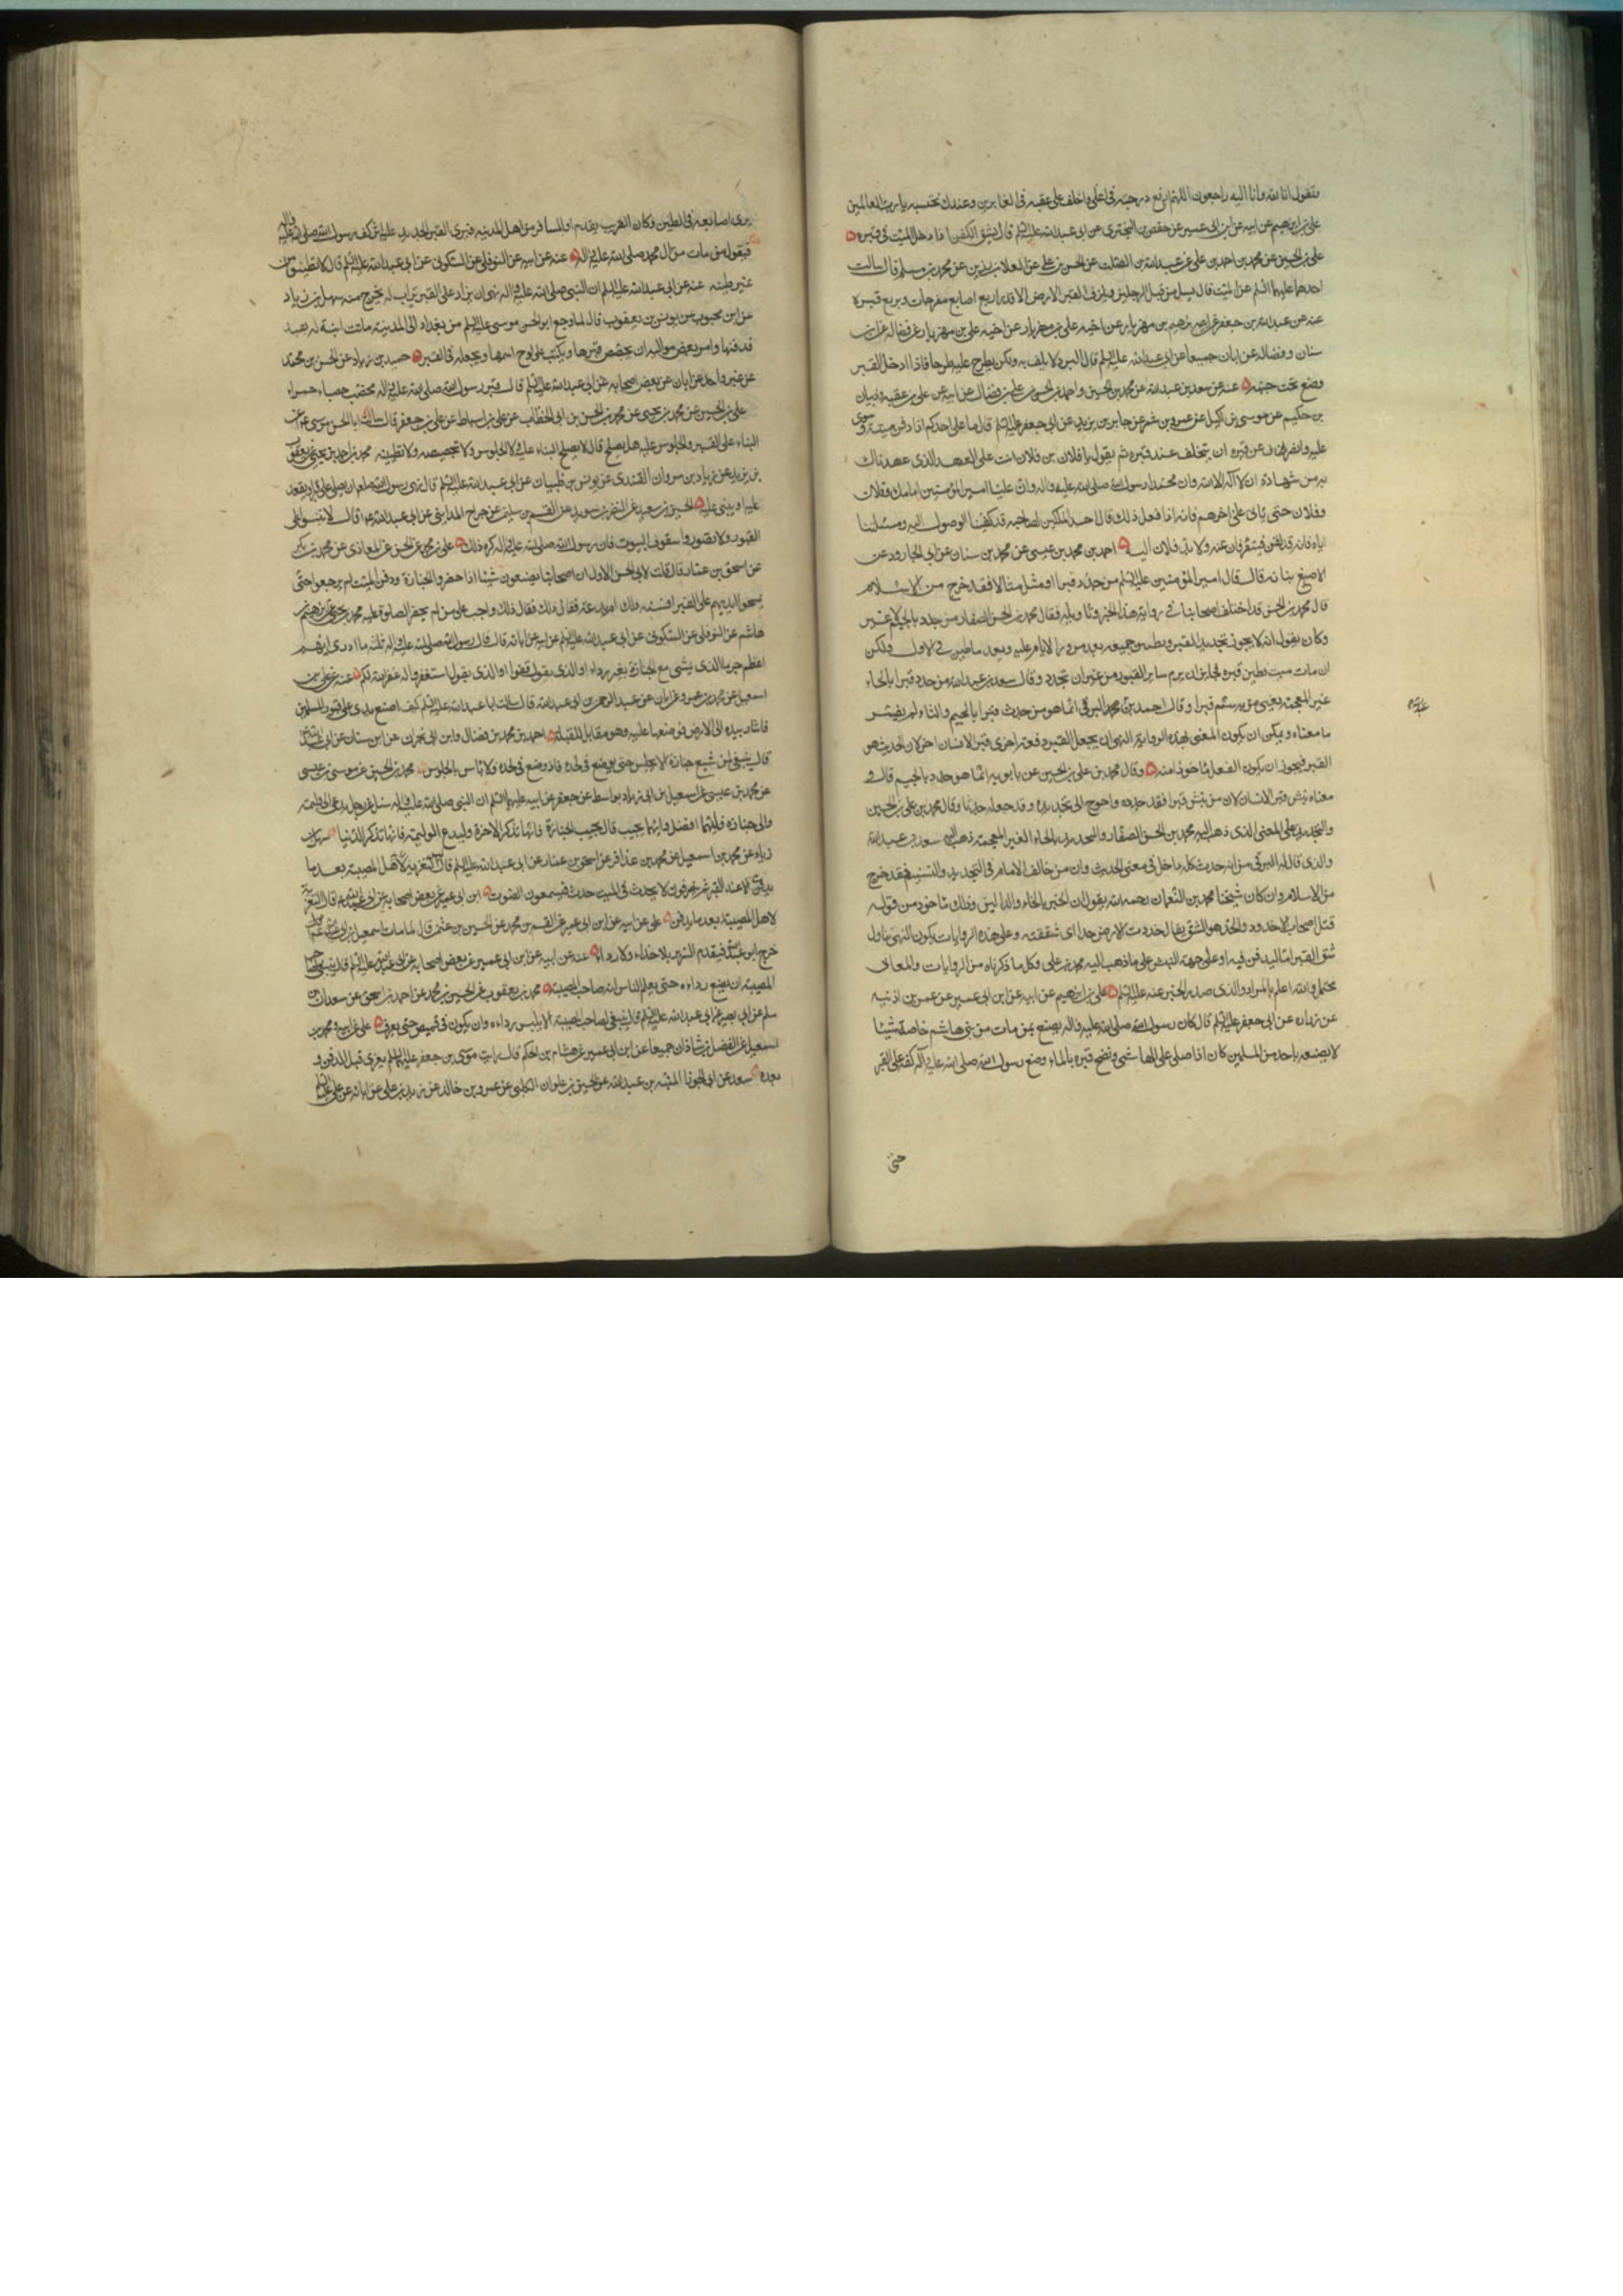 وتقول انا لله وانا اليه راجعون اللهم ارفع درجته في اعلى واخلف على عقبه في الغابرين وعندك نحتسبه يا رب العالمين
علي بن ابرهيم عن ابيه عن ابن ابي عمير عن حفص بن البختري عن ابي عبد الله عليه السلم قال يشق الكفن اذا دخل الميت في قبره
علي بن الحسين عن محمد بن احمد بن علي عن عبد الله بن الصلت عن الحسن بن علي عن العلا بن رزين عن محمد بن مسلم قال سالت
احدهما عليهما السلم عن الميت قال يسل من قبل الرجلين ويلزق القبر الارض الا قدر اربع اصابع مفرجات ويربع قبره
عنه عن عبد الله بن جعفر عن ابرهيم بن مهزيار عن اخيه علي بن مهزيار عن فضاله عن ابن
سنان وفضاله عن ابان جميعا عن ابي عبد الله عليه السلم قال البرد لا يلف به ولكن يطرح عليه طرحا فاذا ادخل القبر
وضع تحت جنبه عنه عن سعد بن عبد الله عن محمد بن الحسين واحمد بن الحسن بن علي بن فضال عن ابيه عن علي بن عقبه وذبيان
بن حكيم عن موسى بن اكيل عن عمرو بن شمر عن جابر بن يزيد عن ابي جعفر عليه السلم قال ما على احدكم اذا دفن ميته وسوى
عليه وانصرف عن قبره ان يتخلف عند قبره ثم يقول يا فلان بن فلان انت على العهد الذي عهدناك
به من شهادة ان لا اله الا الله وان محمدا رسول الله صلى الله عليه واله وان عليا امير المؤمنين امامك وفلان
وفلان حتى ياتي على اخرهم فانه اذا فعل ذلك قال احد الملكين لصاحبه قد كفينا الوصول اليه ومسئلتنا
اياه فانه قد لقن فينصرفان عنه ولا يدخلان اليه احمد بن محمد بن عيسى عن محمد بن سنان عن ابي الجارود عن
الاصبغ بن نباته قال قال امير المؤمنين عليه السلم من جدد قبرا او مثل مثالا فقد خرج من الاسلام
قال محمد بن الحسن قد اختلف اصحابنا في رواية هذا الخبر وتاويله فقال محمد بن الحسن الصفار من جدد بالجيم لا غير
وكان يقول انه لا يجوز تجديد القبر وتطيين جميعه بعد مرور الايام عليه وبعد ما طين في الاول ولكن
ان مات ميت وطين قبره فجايز ان يرم ساير القبور من غير ان تجدد وقال سعد بن عبد الله من حدد قبرا بالحاء
غير المعجمة يعني من سنم قبرا وقال احمد بن محمد البرقي انما هو من جدث قبرا بالجيم والثاء ولم يفسر
ما معناه ويمكن ان يكون المعنى بهذه الرواية النهي ان يجعل القبر دفعة اخرى قبر الانسان اخر لان الجدث هو
القبر فيجوز ان يكون الفعل ماخوذا منه وقال محمد بن علي بن الحسين بن بابويه انما هو جدد بالجيم قال و
معناه نبش قبر الانسان لان من نبش قبرا فقد جدده واحوج الى تجديده وقد جعله جدثا وقال محمد بن علي بن الحسين
والتجديد على المعنى الذي ذهب اليه محمد بن الحسن الصفار والتحديد بالحاء الغير المعجمة ذهب اليه سعد بن عبد الله
والذي قاله البرقي من انه جدث كله داخل في معنى الحديث وان من خالف الامام في التجديد والتسنيم فقد خرج
من الاسلام وان كان شيخنا محمد بن النعمان رحمه الله يقول ان الخبر بالخاء والدالين وذلك ماخوذ من قوله
قتل اصحاب الاخدود والخد هو الشق يقال خددت الارض خدا اي شققته وعلى هذه الروايات يكون النهي تناول
شق القبر اما ليدفن فيه او على جهة النبش على ما ذهب اليه محمد بن علي وكل ما ذكرناه من الروايات والمعاني
محتمل والله اعلم بالمراد والذي صدر الخبر عنه عليه السلم علي بن ابرهيم عن ابيه عن ابن ابي عمير عن عمر بن اذينه
عن زراره عن ابي جعفر عليه السلم قال كان رسول الله صلى الله عليه واله يصنع بمن مات من بني هاشم خاصة شيئا
لا يصنعه باحد من المسلمين كان اذا صلى على الهاشمي ونضح قبره بالماء وضع رسول الله صلى الله عليه واله كفه على القبر
حتى
يرى اصابعه في الطين وكان الغريب يقدم او المسافر من اهل المدينه فيرى القبر الجديد عليه اثر كف رسول الله صلى الله عليه واله
فيقول من مات من ال محمد صلى الله عليه واله عنه عن ابيه عن النوفلي عن السكوني عن ابي عبد الله عليه السلم قال لا تطينوا القبر من
غير طينه عنه عن ابي عبد الله عليه السلم ان النبي صلى الله عليه واله نهى ان يزاد على القبر تراب لم يخرج منه سهل بن زياد
عن ابن محبوب عن يونس بن يعقوب قال لما رجع ابو الحسن موسى عليه السلم من بغداد الى المدينه ماتت ابنة له بفيد
فدفنها وامر بعض مواليه ان يجصص قبرها ويكتب على لوح اسمها ويجعله في القبر حميد بن زياد عن الحسن بن محمد
عن غير واحد عن ابان عن بعض اصحابه عن ابي عبد الله عليه السلم قال قبر رسول الله صلى الله عليه واله محصب حصباء حمراء
علي بن الحسين عن محمد بن يحيى عن محمد بن الحسن بن ابي الخطاب عن علي بن اسباط عن علي بن جعفر قال سالت ابا الحسن موسى عن
البناء على القبر والجلوس عليه هل يصلح قال لا يصلح البناء عليه ولا الجلوس ولا تجصيصه ولا تطيينه محمد بن احمد بن يحيى عن يعقوب
بن يزيد عن زياد بن مروان القندي عن يونس بن ظبيان عن ابي عبد الله عليه السلم قال نهى رسول الله صلعم ان يصلى على قبر او يقعد
عليه او يبنى عليه الحسين بن سعيد عن النضر بن سويد عن القسم بن سليمن عن جراح المدايني عن ابي عبد الله ع قال لا تبنوا على
القبور ولا تصوروا سقوف البيوت فان رسول الله صلى الله عليه واله كره ذلك علي بن محمد عن الحسن عن المعاذي عن محمد بن بكر
عن اسحق بن عمار قال قلت لابي الحسن الاول ان اصحابنا يصنعون شيئا اذا حضروا الجنازة ودفن الميت لم يرجعوا حتى
يمسحوا ايديهم على القبر افسنه ذلك ام بدعة فقال ذلك واجب على من لم يحضر الصلوة عليه محمد بن يحيى عن ابرهيم بن
هاشم عن النوفلي عن السكوني عن ابي عبد الله عليه السلم عن ابيه عن ابائه قال قال رسول الله صلى الله عليه واله ثلثه ما ادري ايهم
اعظم جرما الذي يمشي مع الجنازة بغير رداء او الذي يقول قفوا او الذي يقول استغفروا له غفر الله لكم عنه عن علي بن
اسمعيل عن محمد بن عمرو عن ابان عن عبد الرحمن بن ابي عبد الله قال سالت ابا عبد الله عليه السلم كيف اضع يدي على قبور المسلمين
فاشار بيده الى الارض فوضعها عليه وهو مقابل للقبله احمد بن محمد بن فضال وابن ابي نجران عن ابن سنان عن ابي عبد الله
قال ينبغي لمن شيع جنازة الا يجلس حتى يوضع في لحده فاذا وضع في لحده فلا باس بالجلوس محمد بن الحسين عن موسى بن عيسى
عن محمد بن عيسى عن اسمعيل بن ابي زياد بواسط عن جعفر عن ابيه عليهما السلم ان النبي صلى الله عليه واله سئل عن رجل يدعى الى وليمه
والى جنازه فايهما افضل وايهما يجيب قال يجيب الجنازة فانها تذكر الاخرة وليدع الوليمه فانها تذكر الدنيا سهل بن
زياد عن محمد بن اسمعيل عن محمد بن عذافر عن اسحق بن عمار عن ابي عبد الله عليه السلم قال ليس التعزيه الا هل المصيبة بعد ما
الا عند القبر ثم ينصرفون لا يحدث في الميت حدث فيسمعون الصوت ابن ابي عمير عن بعض اصحابه عن ابي عبد الله ع قال التعزيه
لاهل المصيبة بعد ما يدفن علي عن ابيه عن ابن ابي عمير عن القسم بن محمد عن الحسين بن عثمن قال لما مات اسمعيل بن ابي عبد الله
خرج ابو عبد الله فتقدم السرير بلا حذاء ولا رداء عنه عن ابيه عن ابن ابي عمير عن بعض اصحابه عن ابي عبد الله عليه السلم قال ينبغي لصاحب
المصيبة ان يضع رداءه حتى يعلم الناس انه صاحب المصيبة محمد بن يعقوب عن الحسين بن محمد عن احمد بن اسحق عن سعدان بن
مسلم عن ابي بصير عن ابي عبد الله عليه السلم قال ينبغي لصاحب المصيبة الا يلبس رداءه وان يكون في قميص حتى يعرف علي عن ابيه ومحمد بن
اسمعيل عن الفضل بن شاذان جميعا عن ابن ابي عمير عن هشام بن الحكم قال رايت موسى بن جعفر عليهما السلم يعزي قبل الدفن و
بعده سعد عن ابي الجوزا المنبه بن عبد الله عن الحسين بن علوان الكلبي عن عمرو بن خالد عن زيد بن علي عن ابائه عن علي عليه السلم